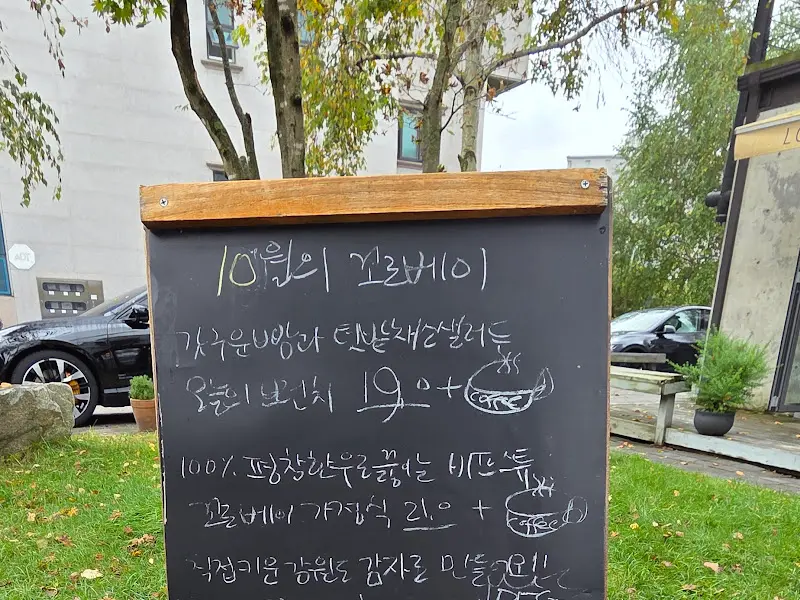 10월의 꼬르베이
갓구운 빵과 텃밭채소샐러드
오늘의 브런치 19.0 + coffee
100% 평창한우로 끓이는 비프스튜
꼬르베이 가정식 21.0 + coffee
직접키운 강원도 감자로 만들
ADT